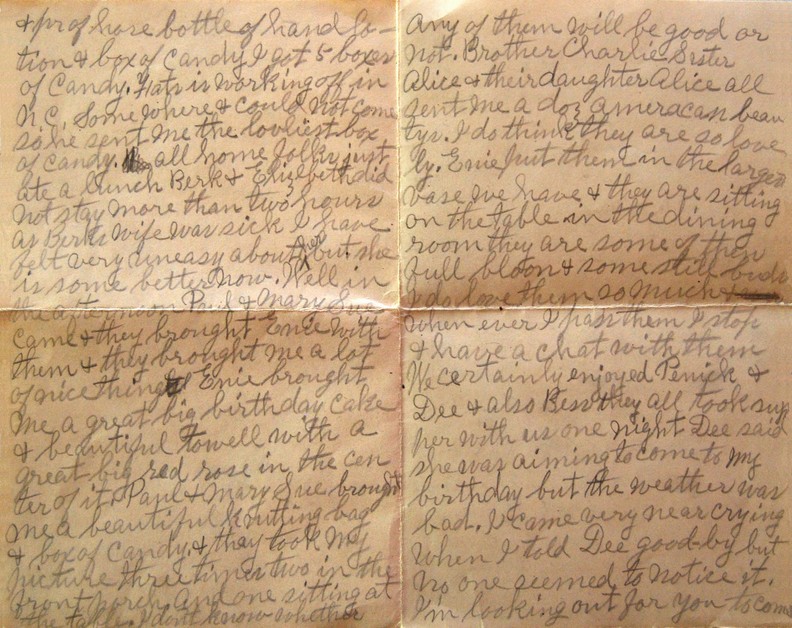 & pr of hose bottle of hand lo-
tion & box of candy I got 5 boxes
of candy. is working off in
N.C. Some where & could not come
so he sent me the lovliest box
of candy. all home folks just
ate a lunch Berk & Elizebeth did
not stay more than two hours
as Berks wife was sick I have
felt very uneasy about her but she
is some better now. Well in
the afternoon Paul & Mary Sue
came & they brought Enie with
them & they brought me a lot
of nice things Enie brought
me a great big birthday cake
& beautiful towell with a
great big red rose in the cen
ter of it. Paul & Mary Sue brought
me a beautiful knitting bag
& box of candy. & they took my
picture three times two in the
front porch and one sitting at
the table. I don't know whether
any of them will be good or
not. Brother Charlie Sister
Alice & their daughter Alice all
sent me a doz ameracan beau
tys. I do think they are so love
ly. Enie put them in the larges
vase we have & they are sitting
on the table in the dining
room they are some of them
full bloom & some still buds
I do love them so much &
when ever I pass them I stop
& have a chat with them
We certainly enjoyed Penick &
Dee & also Bess they all took sup
per with us one night Dee said
she was aiming to come to my
birthday but the weather was
bad. I came very near crying
when I told Dee good-by but
no one seemed to notice it.
I'm looking out for you to come